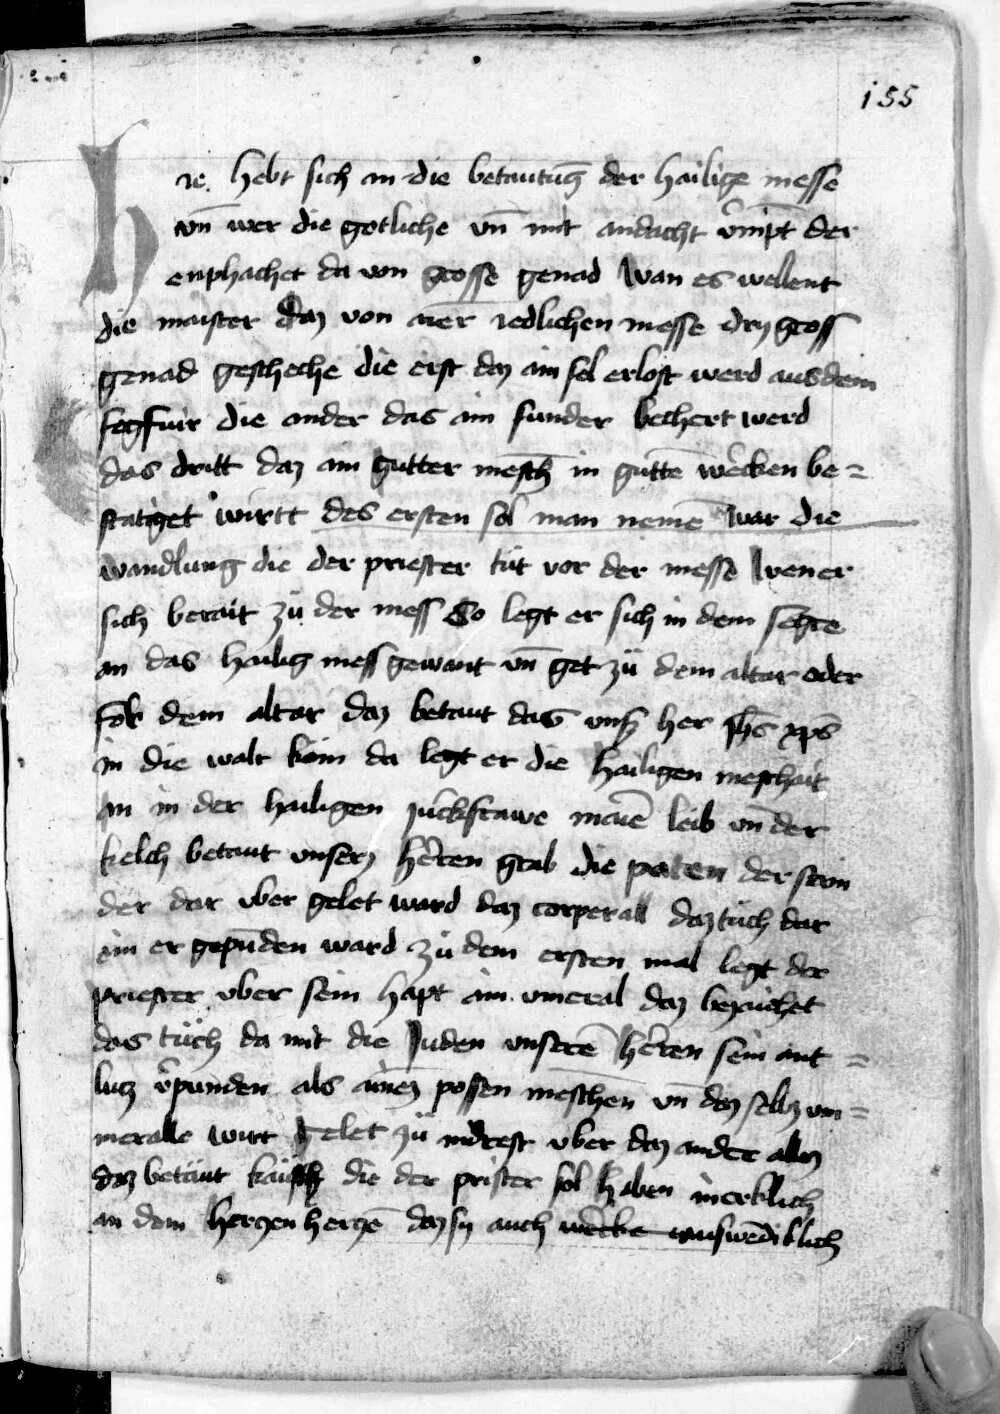 155
Hie hebt sich an die betautūg der hailige messe
vn̄ wer die gotliche vn̄ mit andacht v̄nīpt der
enphachet da von grosse genad wan es wellent
die maister daz von ainer redlichen messe dry gross
genad gescheche die erst daz ain sel erlost werd aus dem
fegfuir die ander das ain sunder bechert werd
das dritt daz ain gutter mēsch in guttē wercken be=
statiget wirtt des ersten sol man nemē war die
wandlung die der priester tůt vor der messe wen er
sich berait zů der mess So legt er sich in dem
an das hailig mess gewant vn̄ get zů dem altar oder
dem altar daz betaut das vnser her jhs xps
in die walt kam da legt er die hailigen meschait
an in der hailigen junckfrawe leib vn̄ der
kelch betaut vnsers herren grab die paten der stain
der dar vber gelet ward daz corperall daz tůch dar
in er gepūden ward zů dem ersten mal legt der
priester vber sein hapt ain vmeral daz bezaichet
das tůch da mit die Juden vnserē herren sein ant=
lutz v̄punden als ainē possen meschen vn̄ daz selb vm=
meralle wirt gelet zů vndrest vber daz ander alles
daz betaut kaisch die der prister sol haben merklich
an dem herzen herzē daz sy auch wercke vswēdiklich